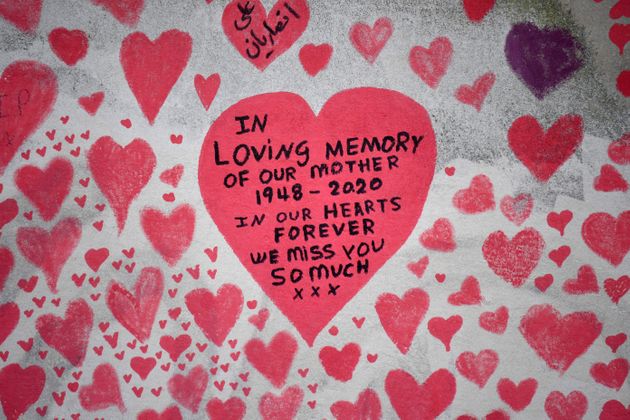 علی انصاریان
IN
LOVING MEMORY
OF OUR MOTHER
1948 - 2020
IN OUR HEARTS
FOREVER
WE MISS YOU
SO MUCH
x x x